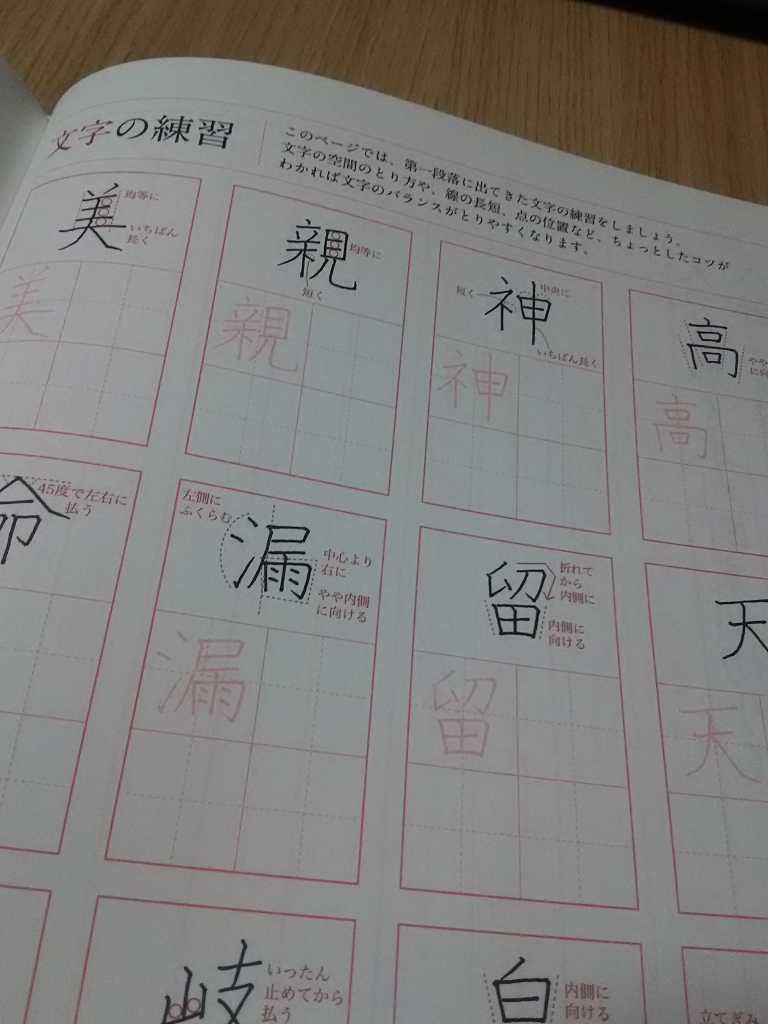 文字の練習
このページでは、第一段落に出てきた文字の練習をしましょう。
文字の空間のとり方や、線の長短、点の位置など、ちょっとしたコツが
わかれば文字のバランスがとりやすくなります。
美
均等に
いちばん
長く
美
親
均等に
短く
親
神
中央に
短く
いちばん長く
神
高
やや
に向
高
命
45度で左右に
払う
漏
左側に
ふくらむ
中心より
右に
やや内側
に向ける
漏
留
折れて
から
内側に
内側に
向ける
留
天
天
岐
いったん
止めてから
払う
白
内側に
向ける
立てぎみ